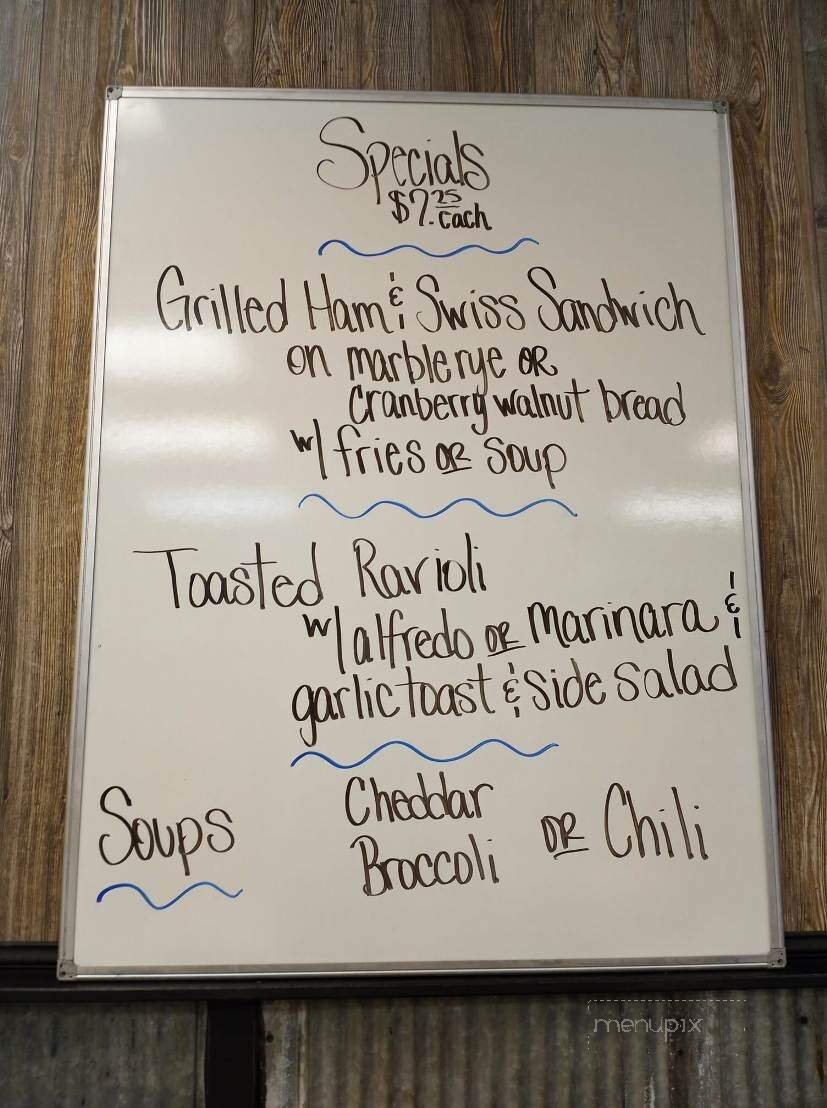 Specials
$7.25 each
Grilled Ham & Swiss Sandwich
on marble rye OR
Cranberry walnut bread
w/ fries OR Soup
Toasted Ravioli
w/ alfredo OR Marinara &
garlic toast & side salad
Soups
Cheddar
Broccoli OR Chili
menupix